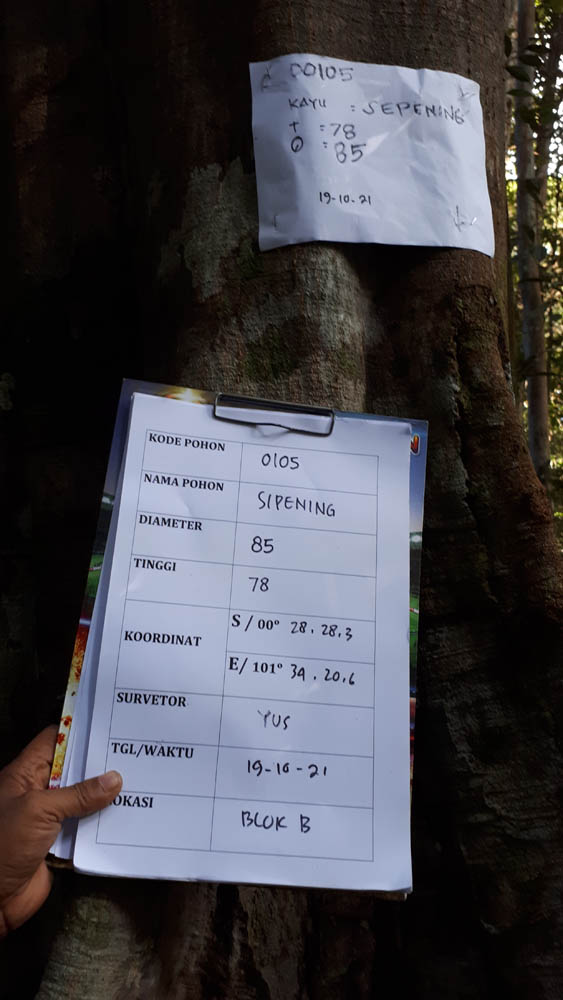 00105
KAYU : SEPENING
T : 78
O : 85
19-10-21
KODE POHON 0105
NAMA POHON SIPENING
DIAMETER 85
TINGGI 78
KOORDINAT S / 00° 28. 28.3
E/ 101° 39. 20.6
SURVETOR YUS
TGL/WAKTU 19-10-21
OKASI BLOK B